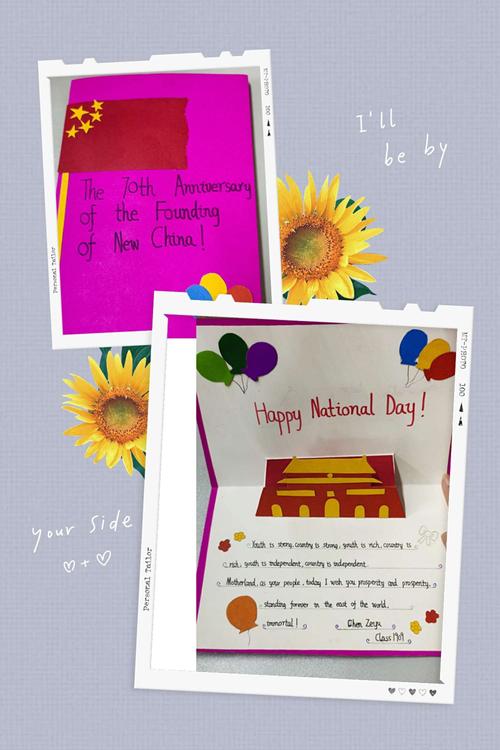 I'll
be by
The 70th Anniversary
of the Founding
of New China!
Personal Tailor
Happy National Day!
Youth is strong, country is strong, youth is rich, country is
rich, youth is independent, country is independent.
Motherland, as your people, today I wish you prosperity and prosperity,
standing forever in the east of the world,
immortal!
Chen Zeyu
Class 1909
your side
Personal Tailor